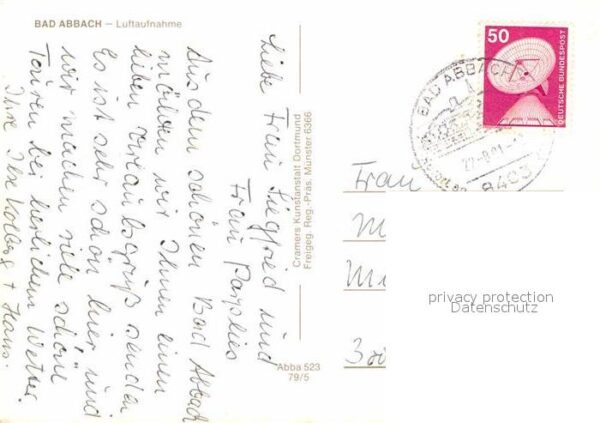 BAD ABBACH — Luftaufnahme
Liebe Frau Siegfried und
Frau Paplies
Aus dem schönen Bad Abbach
möchten wir Ihnen einen
lieben Urlaubsgruß senden
Es ist sehr schön hier und
wir machen viele schöne
Touren bei herrlichem Wetter.
Ihre Ilse Kolberg + Hans.
Cramers Kunstanstalt Dortmund
Freigeg. Reg.-Präs. Münster 6366
Abba 523
79/5
50
DEUTSCHE BUNDESPOST
BAD ABBACH
8403
Frau
M
Mü
300
privacy protection
Datenschutz